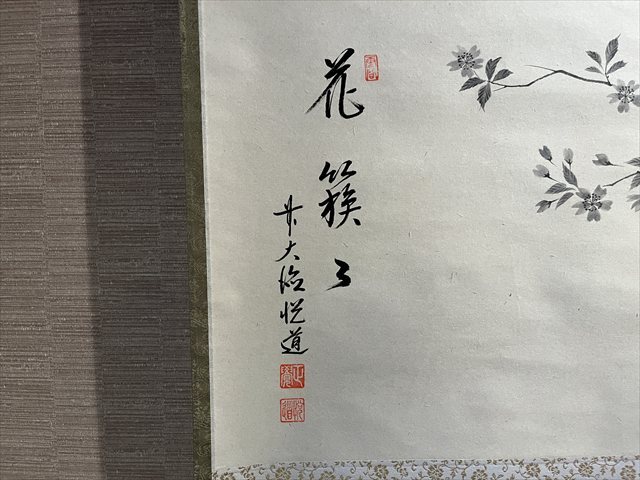 花簇々
前大徳悦道